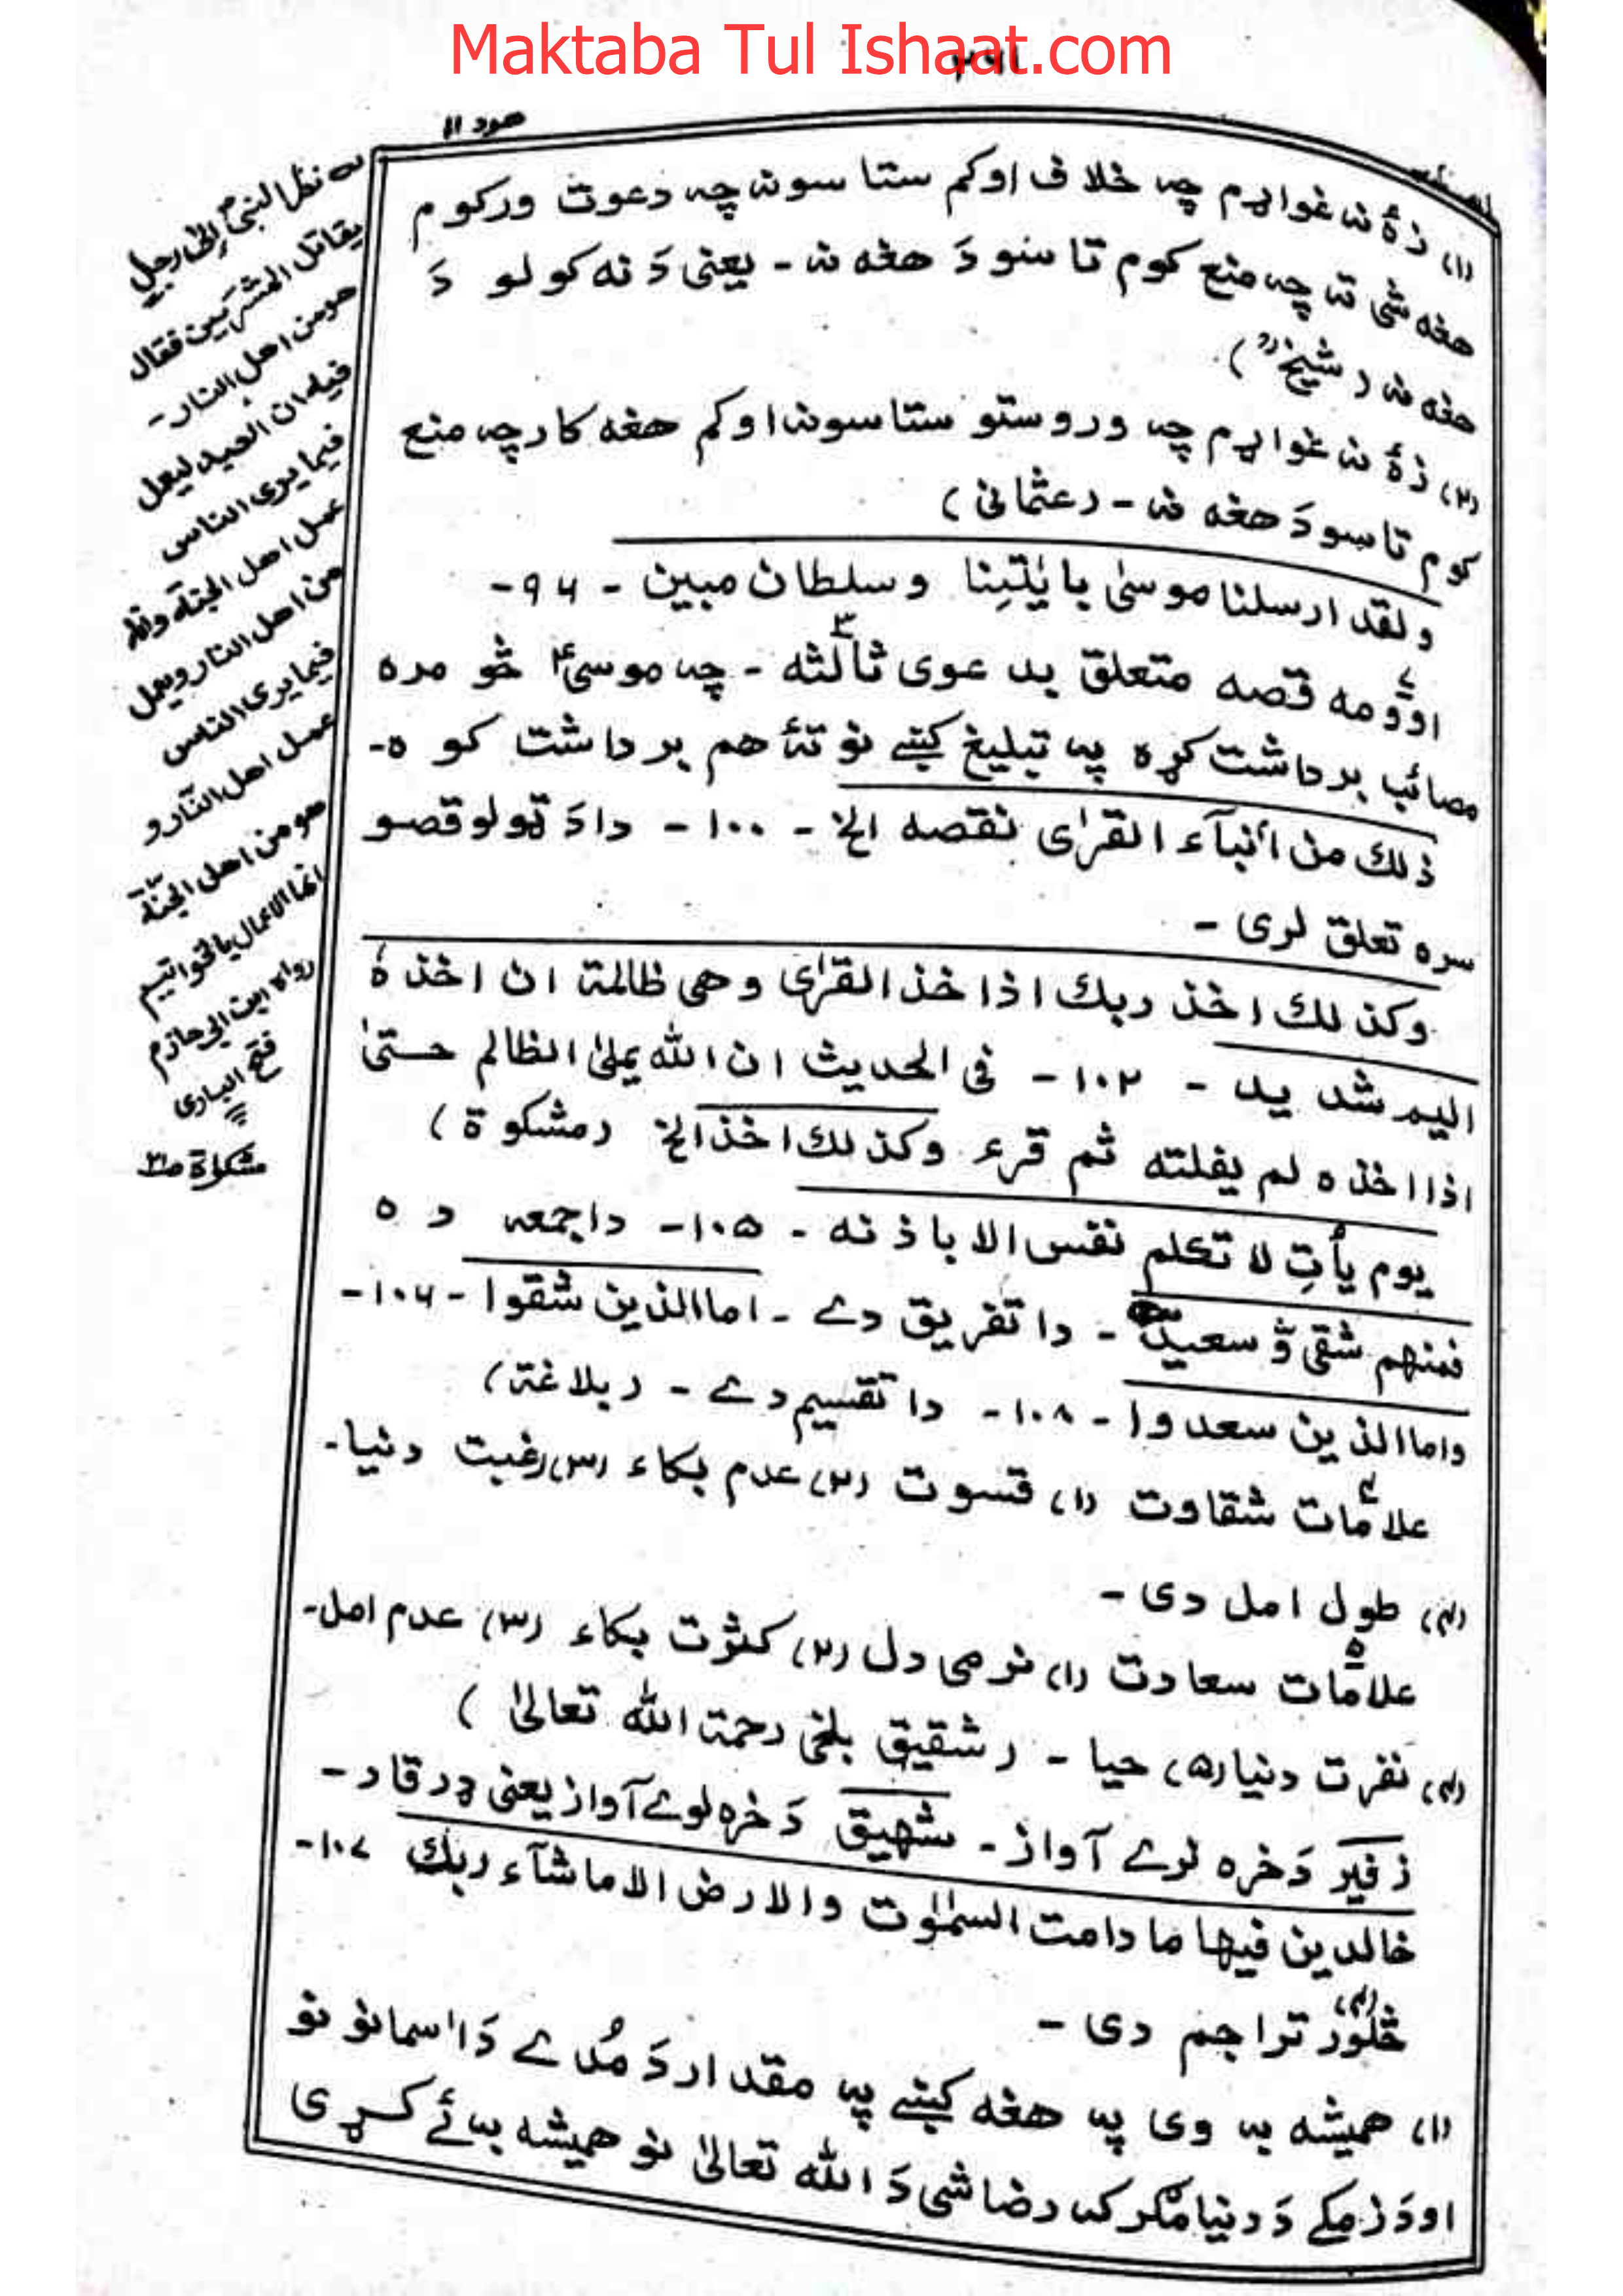 Maktaba Tul Ishaat.com
۲۶۱
هود ۱۱
(۱) زۀ نه غواړم چه خلاف اوکم ستا سونه چه دعوت ورکوم
هغه شی ته چه منع کوم تاسو دَ هغه نه - یعنی دَ نه کولو دَ
هغه نه (شیخ ؒ)
(۲) زۀ نه غواړم چه وروستو ستاسونه اوکم هغه کار چه منع
کوم تاسو دَ هغه نه - (عثمانی)
ولقد ارسلنا موسیٰ بایٰتِنا وسلطان مبین - ۹۶ -
اوومه قصه متعلق په دعوی ثالثه - چه موسیٰ ؑ څو مره
مصائب برداشت کړه په تبلیغ کښے نو تۀ هم برداشت کوه -
ذٰلك من أنبآء القرٰی نقصه الخ - ۱۰۰ - دا دَ ټولو قصو
سره تعلق لری -
وكذلك اخذ ربك اذا خذ القرٰی وهی ظالمة ان اخذہٗ
اليم شديد - ۱۰۲ - فی الحدیث ان الله یملئ الظالم حتیٰ
اذا اخذه لم یفلته ثم قرء وكذلك اخذ الخ (مشکوة)
یوم یأتِ لا تکلم نفس الا باذنه - ۱۰۵ - دا جمعه ده
فمنهم شقی وّ سعیدٌ - دا تفریق دے - اما الذین شقوا - ۱۰۶ -
واما الذین سعدوا - ۱۰۸ - دا تقسیم دے - (بلاغة)
علامات شقاوت (۱) قسوت (۲) عدم بکاء (۳) رغبت دنیا -
(۴) طول امل دی -
علامات سعادت (۱) نرمی دل (۲) کثرت بکاء (۳) عدم امل -
(۴) نفرت دنیا (۵) حیا - (شقیق بلخی رحمة الله تعالیٰ)
زفیر دَ خره لوے آواز - شهیق دَ خره لوے آواز یعنی ډرقار -
خالدین فیها ما دامت السمٰوٰت والارض الا ماشآء ربك ۱۰۷ -
څلور (۴) تراجم دی -
(۱) همیشه به وی په هغه کښے په مقدار دَ مُدے دَ اسمانونو
او دَ زمکے دَ دنیا مګر که رضا شی دَ الله تعالیٰ نو همیشه به ئے کړی
له نظر النبی ؐ الی رجل
یقاتل المشرکین فقال
هو من اهل النار -
فیه ان العبد لیعمل
فیما یری الناس
عمل اهل الجنة وانه
من اهل النار ویعمل
فیما یری الناس
عمل اهل النّار و
هو من اهل الجنّة
انما الاعمال بالخواتیم
رواه ابن ابی حازم
فتح الباری
مشکاة ص۲۰